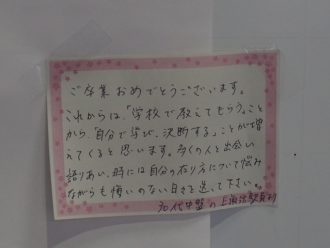 ご卒業おめでとうございます。
これからは、「学校で教えてもらう」こと
から、「自分で学び、決断する」ことが増
えてくると思います。多くの人と出会い
語りあい、時には自分の在り方について悩み
ながらも悔いのない日々を送って下さい。
30代中盤の